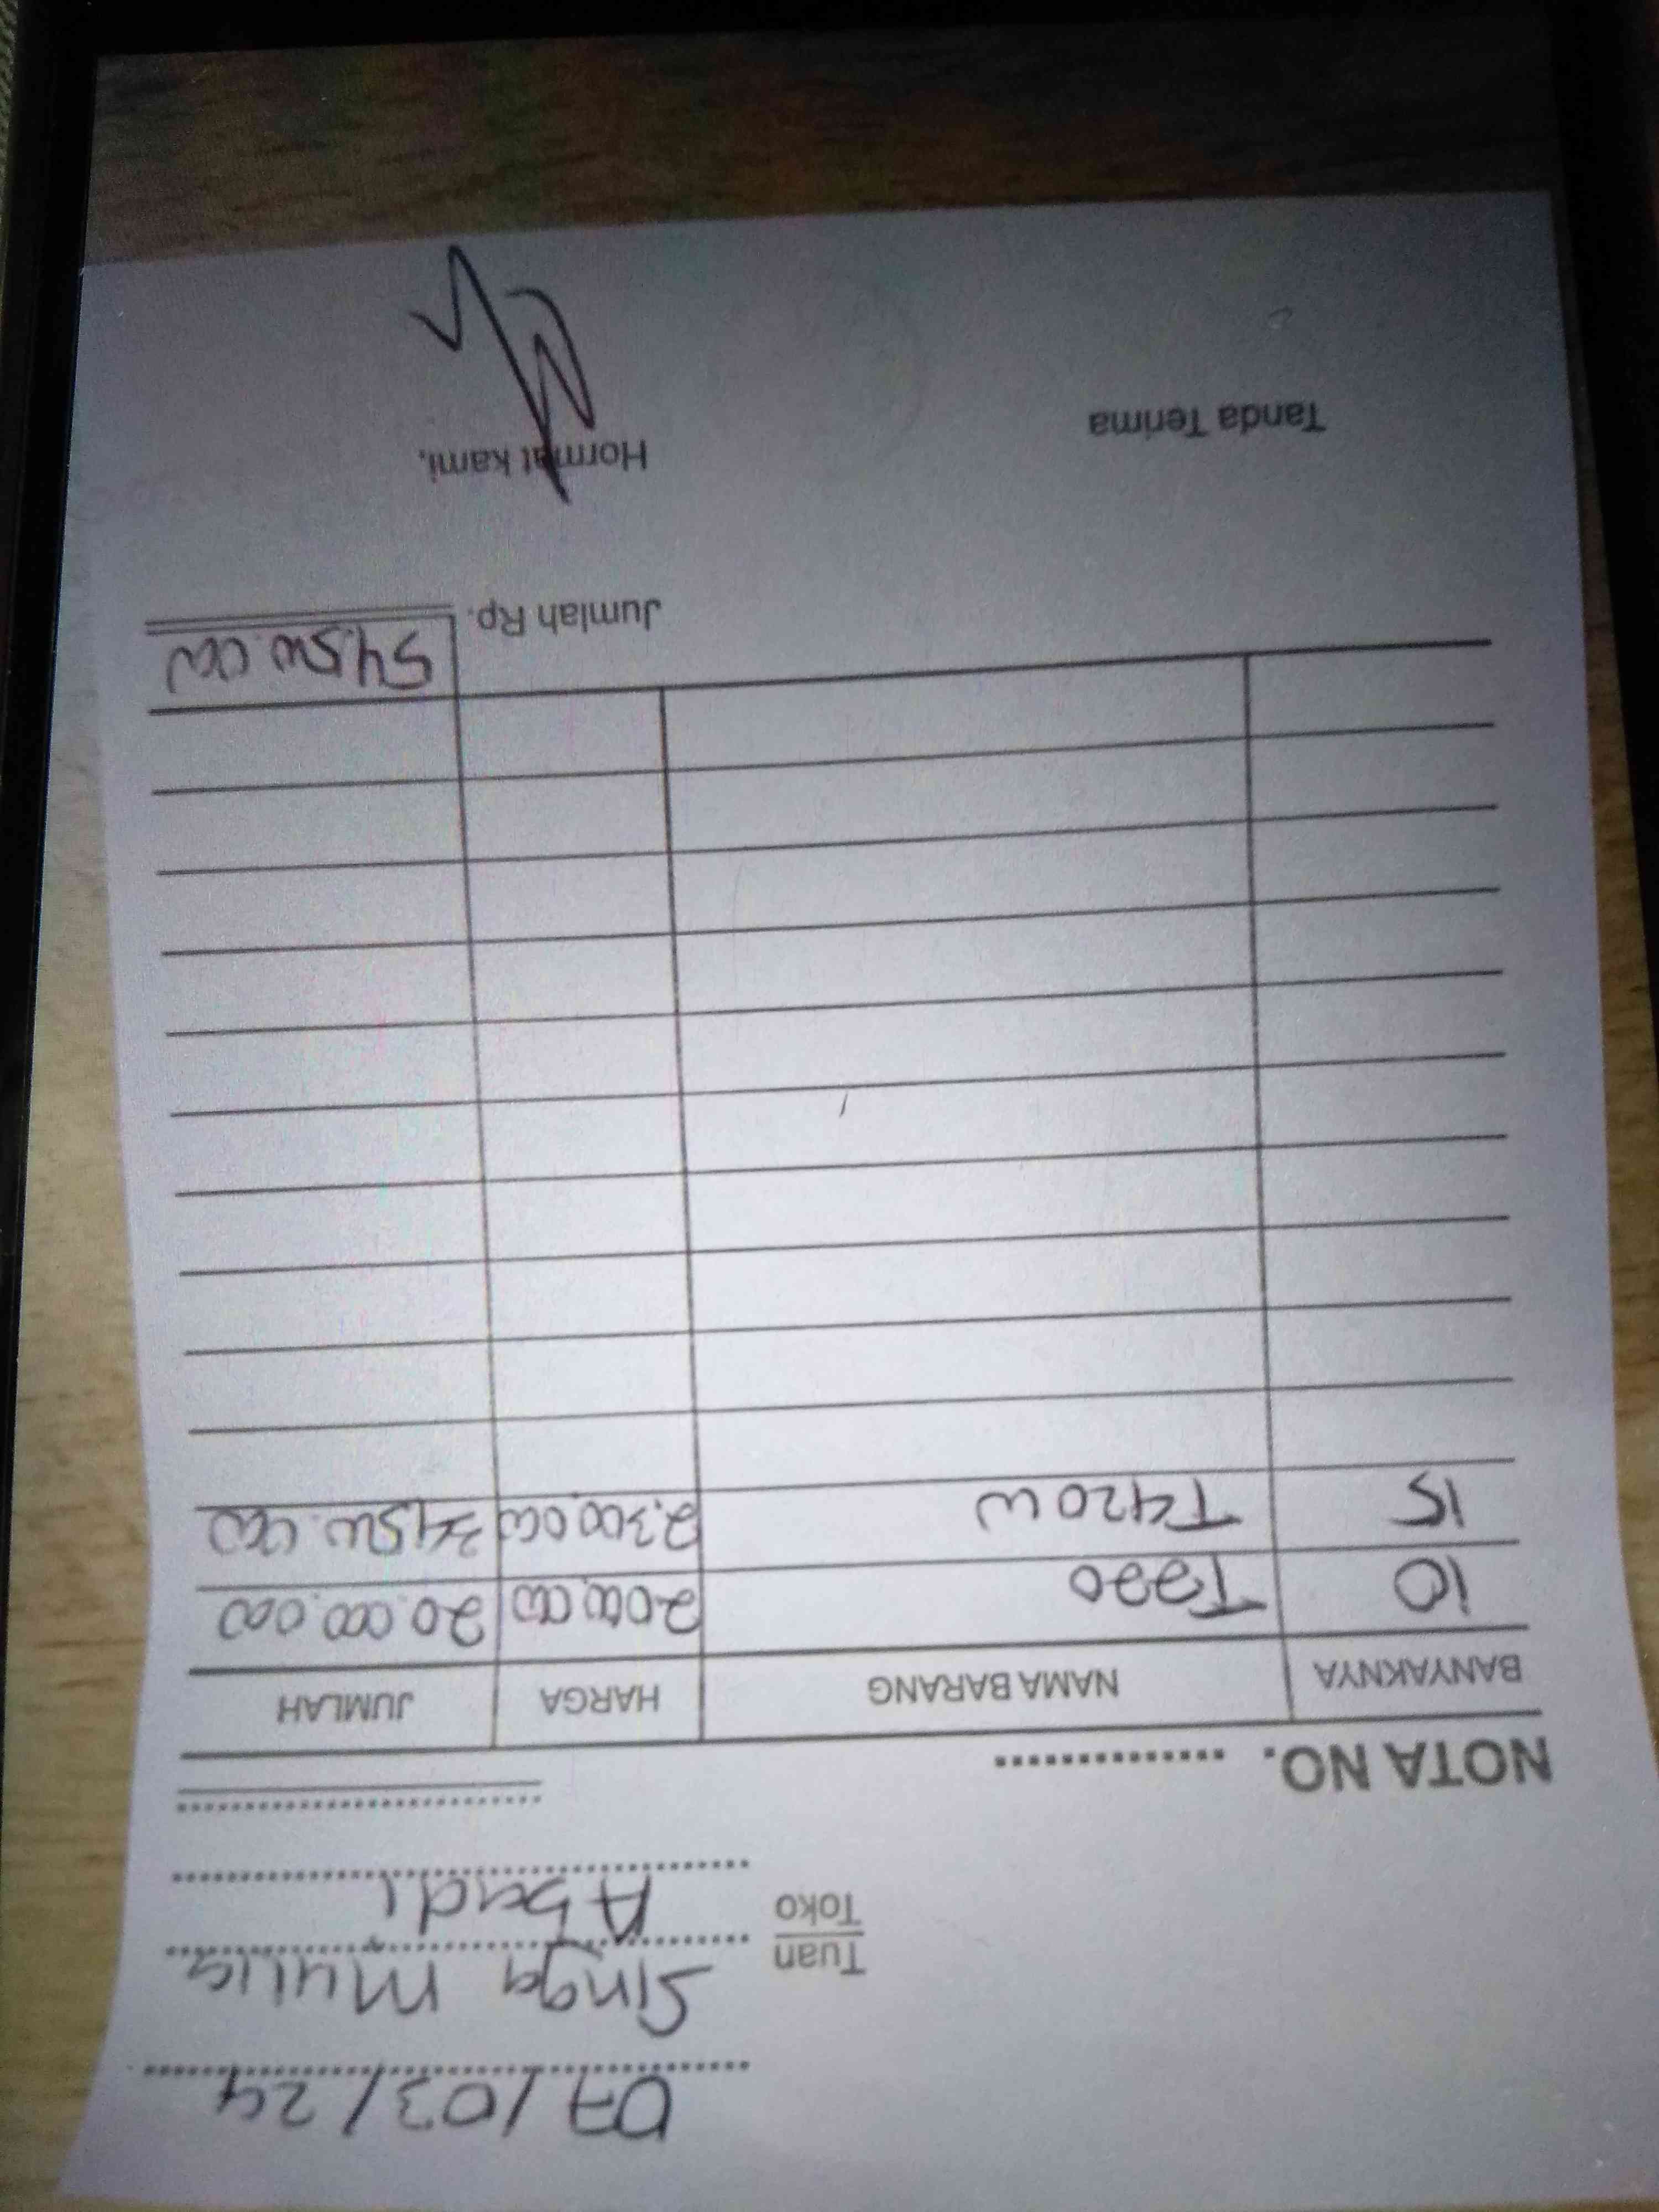 07/03/24
Tuan Singa Mulia
Toko Abadi
NOTA NO. ..............
BANYAKNYA NAMA BARANG HARGA JUMLAH
10 T220 2.000.000 20.000.000
15 T420W 2.300.000 34.500.000
Jumlah Rp. 54.500.000
Tanda Terima Hormat kami,